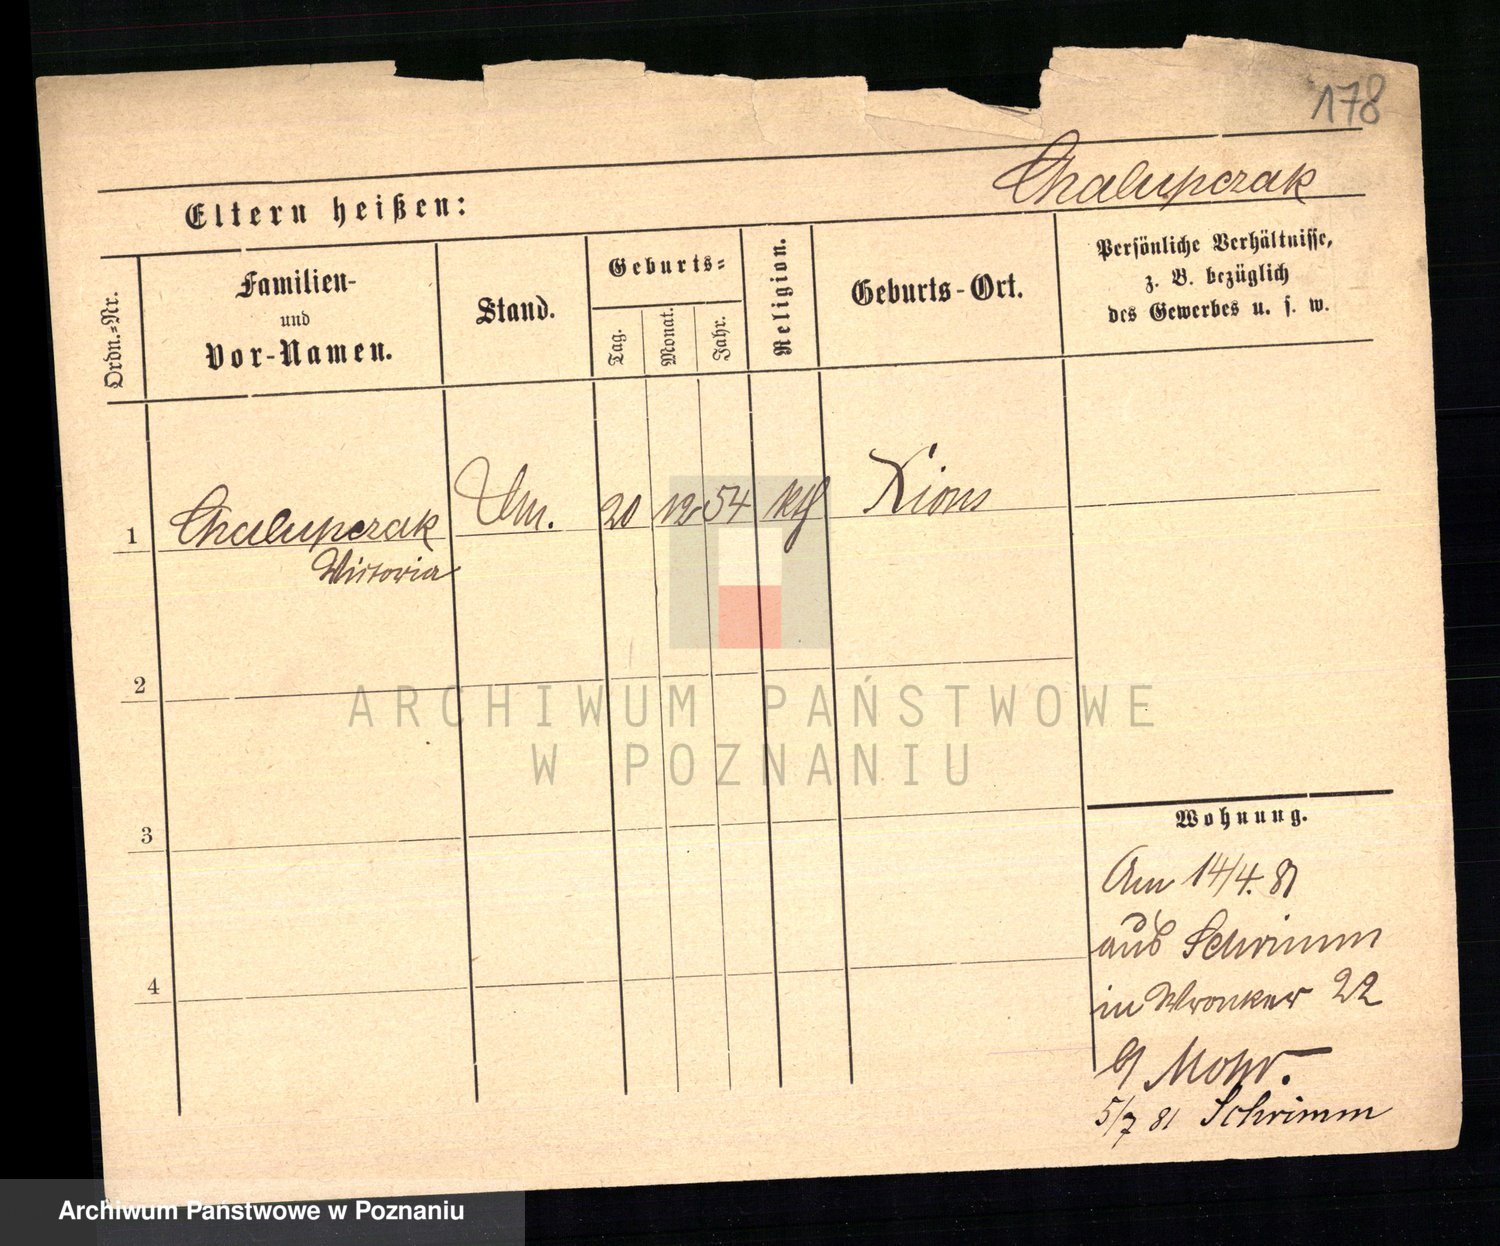 178
Chalupczak
Eltern heißen:
Ordn.-Nr.
Familien-
und
Vor-Namen.
Stand.
Geburts-
Tag.
Monat.
Jahr.
Religion.
Geburts-Ort.
Persönliche Verhältnisse,
z. B. bezüglich
des Gewerbes u. s. w.
1 Chalupczak 20 12 54 kth Xions
Victoria
2
3
4
Wohnung.
Am 14/4. 81
aus Schrimm
in Wronker 22
b/ Mohr.
5/7 81 Schrimm
ARCHIWUM PAŃSTWOWE
W POZNANIU
Archiwum Państwowe w Poznaniu